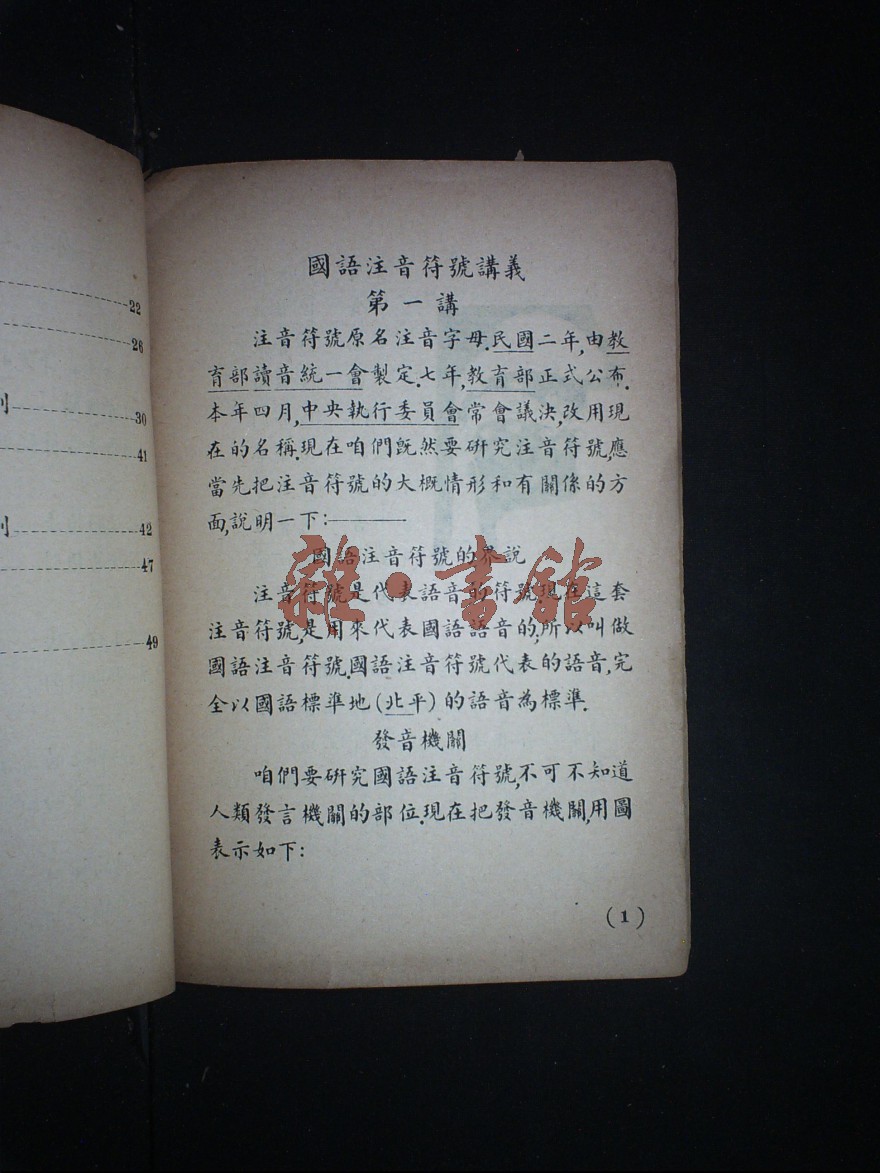 22
26
刂
30
41
刂
42
47
49
國語注音符號講義
第一講
注音符號原名注音字母.民國二年,由教
育部讀音統一會製定.七年,教育部正式公布.
本年四月,中央執行委員會常會議決,改用現
在的名稱.現在咱們旣然要硏究注音符號,應
當先把注音符號的大概情形和有關係的方
面,說明一下:————
國語注音符號的界說
注音符號是代表語音的符號,現在這套
注音符號,是用來代表國語語音的,所以叫做
國語注音符號.國語注音符號代表的語音,完
全以國語標準地(北平)的語音為標準.
發音機關
咱們要硏究國語注音符號,不可不知道
人類發言機關的部位.現在把發音機關,用圖
表示如下:
(1)
雜·書館